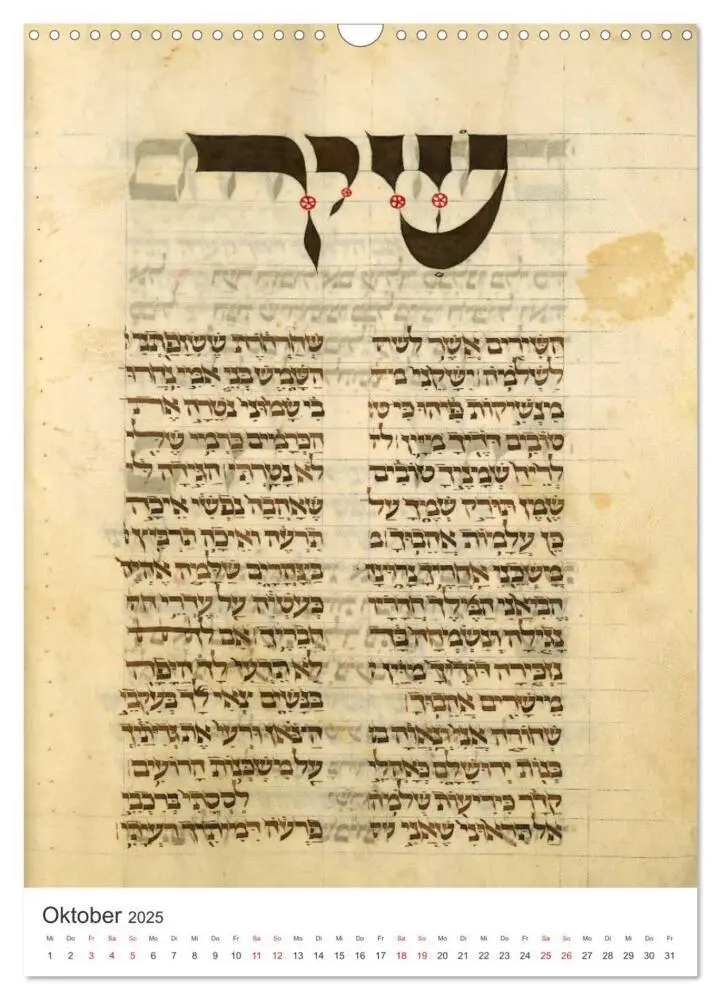 שיר
השירים אשר
לשלמה ישקני
מנשיקות פיהו כי טו
טובים דדיך מיין לר
לריח שמניך טובים
שמן תורק שמך על
כן עלמות אהבוך
משכני אחריך נרוצה
הביאני המלך חדריו
נגילה ונשמחה בך
נזכירה דדיך מיין
מישרים אהבוך
שחורה אני ונאוה בנ
בנות ירושלם כאהלי
קדר כיריעות שלמה
אל תראוני שאני ש
שחרחרת ששזפתני
השמש בני אמי נחרו
בי שמוני נטרה את
הכרמים כרמי שלי
לא נטרתי הגידה לי
שאהבה נפשי איכה
תרעה ואיכה תרביץ
בצהרים שלמה אהיה
כעטיה על עדרי
חבריך אם
לא תדעי לך היפה
בנשים צאי לך בעקבי
הצאן ורעי את גדיתיך
על משכנות הרועים
לססתי ברכבי
פרעה דמיתיך רעיתי
Oktober 2025
Mi Do Fr Sa So Mo Di Mi Do Fr Sa So Mo Di Mi Do Fr Sa So Mo Di Mi Do Fr Sa So Mo Di Mi Do Fr
1 2 3 4 5 6 7 8 9 10 11 12 13 14 15 16 17 18 19 20 21 22 23 24 25 26 27 28 29 30 31